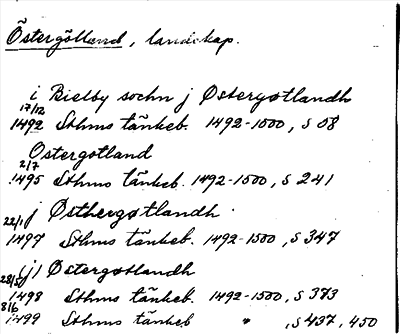 Östergötland, landskap.
i Bielby sochn j Østergøtlandh
17/12
1492 Sthms tänkeb. 1492-1500, s 08
Ostergotland
2/7
1495 Sthms tänkeb. 1492-1500, s 241
22/1 j Østhergøtlandh
1497 Sthms tänkeb. 1492-1500, s 347
28/5 j Østergøtlandh
1498 Sthms tänkeb. 1492-1500, s 373
8/6
1499 Sthms tänkeb " , s 437, 450